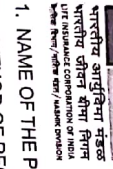 भारतीय आयुर्विमा मंडळ
भारतीय जीवन बीमा निगम
LIFE INSURANCE CORPORATION OF INDIA
/ NASHIK DIVISION
1. NAME OF THE P